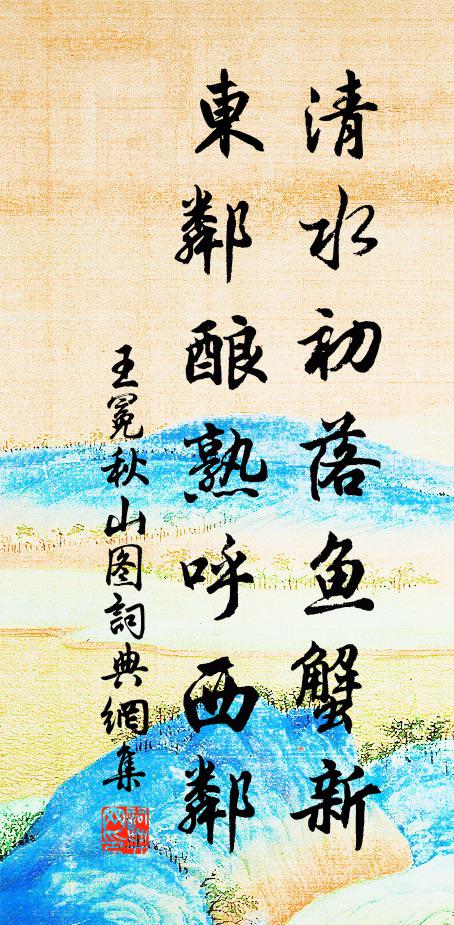 清水初落魚蟹新
東鄰酿熟呼西鄰
王冕秋山图詞典網集